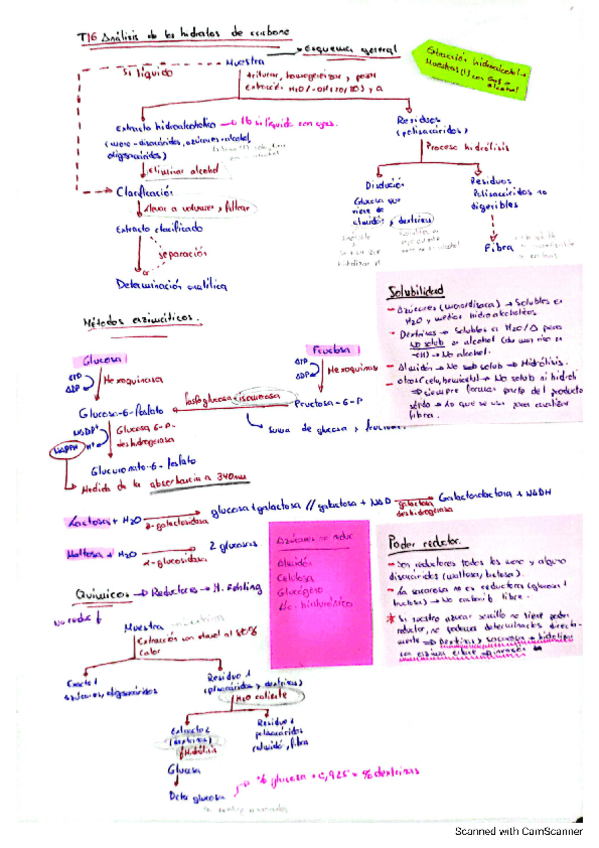 T16 Análisis de los hidratos de carbono
→ Esquema general
Extracción hidroalcohólica
alcohol
Si líquido
Muestra
triturar, homogeneizar y pesar
extracción H2O/-OH (20/80) y Δ
Extracto hidroalcohólico → Ib si líquido con azúc.
(mono-disacáridos, azúcares-alcohol,
oligosacáridos)
Eliminar alcohol
Residuos
(polisacáridos)
Proceso hidrólisis
Clarificación
Llevar a volumen y filtrar
Extracto clarificado
separación
Determinación analítica
Disolución
Glucosa que
viene de
almidón y dextrina
Residuos
Polisacáridos no
digeribles
Fibra
Solubilidad
- Azúcares (monordisaca) → Solubles en
H2O y medios hidroalcohólicos.
- Dextrinas → Solubles en H2O/Δ pero
no solub en alcohol
(H) → No alcohol.
- Almidón → No solub → Hidrólisis.
→ siempre forman parte del producto
sólido → Lo que se usa para cuantificar
fibra.
Métodos enzimáticos.
Glucosa
ATP
ADP
Hexoquinasa
Fructosa
ATP
ADP
Hexoquinasa
Glucosa-6-fosfato
fosfoglucosa-isomerasa
Fructosa-6-P
NADP+
NADPH H+
Glucosa 6-P-
deshidrogenasa
→ Suma de glucosa y fructosa
Gluconato-6-fosfato
→ Medida de la absorbancia a 340nm
Lactosa + H2O → glucosa + galactosa // galactosa + NAD → Galactonolactona + NADH
β-galactosidasa
galactosa
deshidrogenasa
Maltosa + H2O → 2 glucosas
α-glucosidasa
Azúcares no reduc
Almidón
Celulosa
Glucógeno
Ác. hialurónico
Poder reductor.
- Son reductores todos los mono y algunos
disacáridos (maltosa, lactosa).
- La sacarosa no es reductora (glucosa +
fructosa) → No carbonilo libre.
* Si nuestro azúcar sencillo no tiene poder
reductor, no podemos determinarlos directa-
mente ⇒ Dextrinas y sacarosa → hidrólisis
Químicos → Reductores → M. Fehling
No reduc ↓
Muestra
Extracción con etanol al 80%
Calor
Extracto 1
azúcares, oligosacáridos
Residuo 1
(polisacáridos y dextrinas)
H2O caliente
Extracto 2
(dextrinas)
Hidrólisis
Residuo 2
polisacáridos
almidón, fibra
Glucosa
Deter glucosa → % glucosa × 0,925 = % dextrinas
Scanned with CamScanner